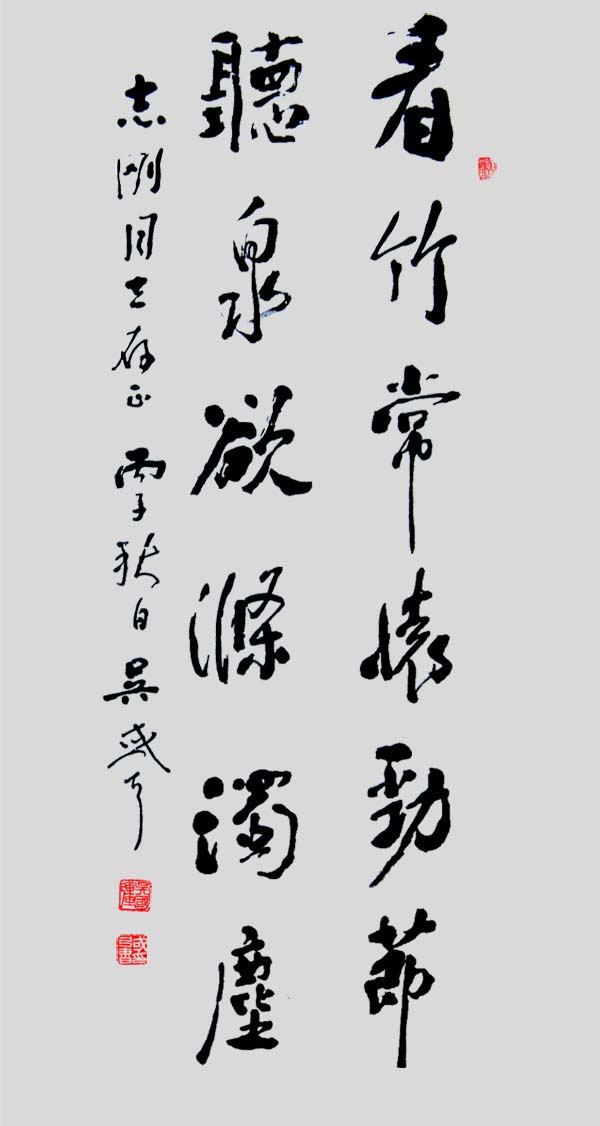 看竹常懷勁節
聽泉欲滌濁塵
志剛同志存正 丙子秋日 吳國亭